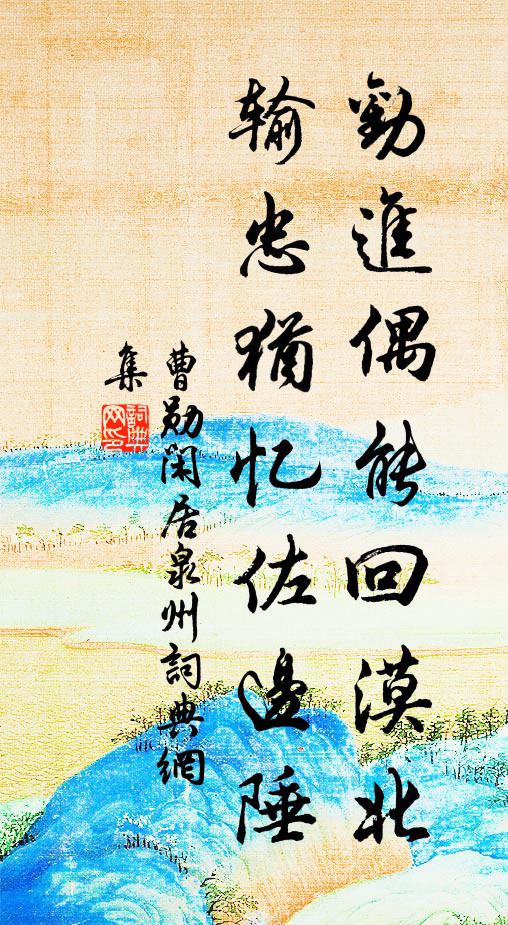 勸進偶能回漠北
输忠猶忆佐邊陲
曹勛閑居泉州詞典網
集
詞典网印